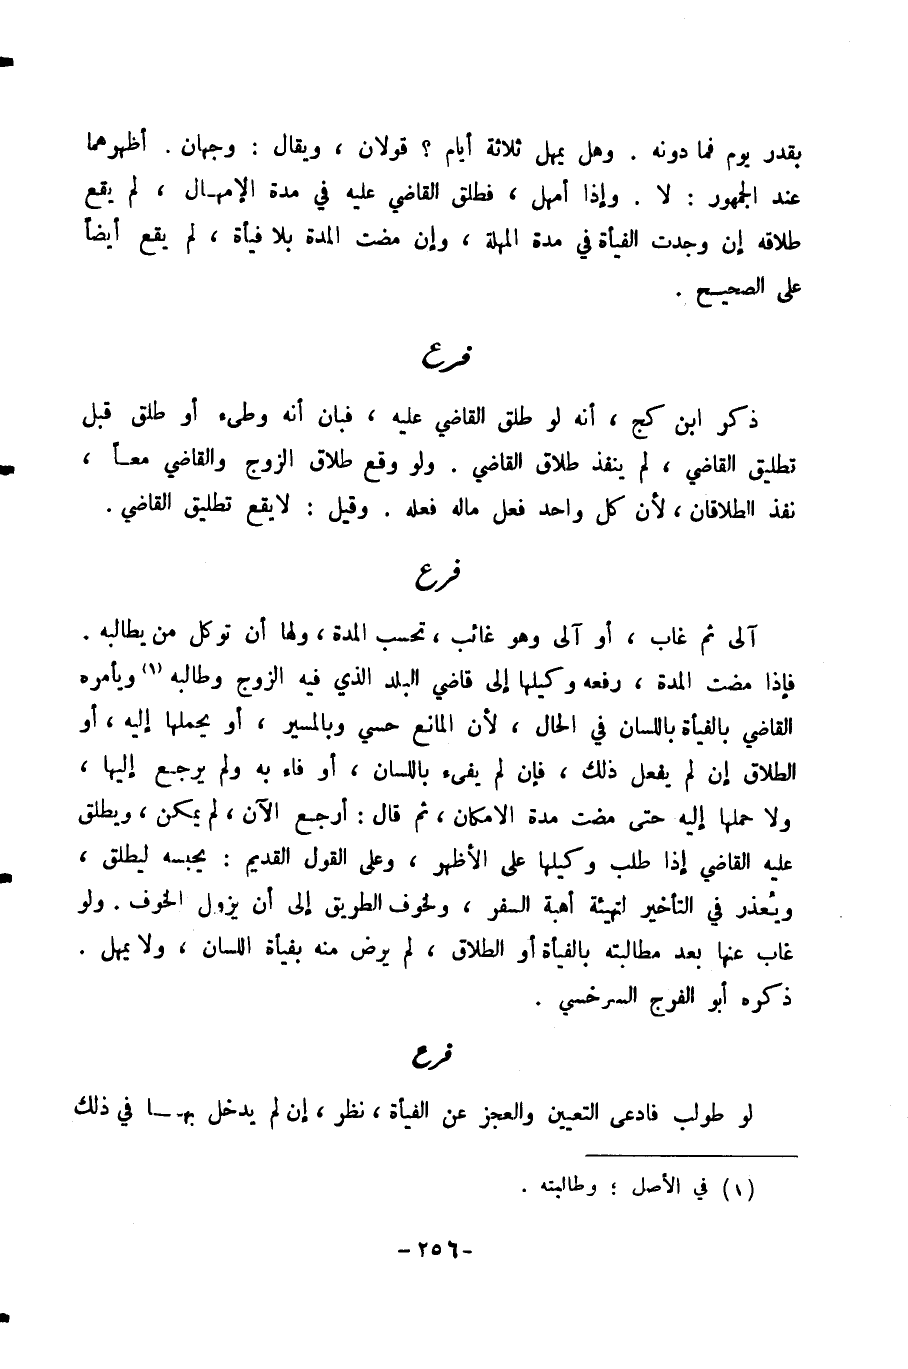 بقدر يوم فما دونه . وهل يمهل ثلاثة أيام ؟ قولان ، ويقال : وجهان . أظهرهما
عند الجمهور : لا . وإذا أمهل ، فطلق القاضي عليه في مدة الإمهال ، لم يقع
طلاقه إن وجدت الفيأة في مدة المهلة ، وإن مضت المدة بلا فيأة ، لم يقع أيضاً
على الصحيح .
فرع
ذكر ابن كج ، أنه لو طلق القاضي عليه ، فبان أنه وطىء أو طلق قبل
تطليق القاضي ، لم ينفذ طلاق القاضي . ولو وقع طلاق الزوج والقاضي معاً ،
نفذ الطلاقان ، لأن كل واحد فعل ماله فعله . وقيل : لايقع تطليق القاضي .
فرع
آلى ثم غاب ، أو آلى وهو غائب ، تحسب المدة ، ولها أن توكل من يطالبه .
فإذا مضت المدة ، رفعه وكيلها إلى قاضي البلد الذي فيه الزوج وطالبه (١) ويأمره
القاضي بالفيأة باللسان في الحال ، لأن المانع حسي وبالمسير ، أو يحملها إليه ، أو
الطلاق إن لم يفعل ذلك ، فإن لم يفىء باللسان ، أو فاء به ولم يرجع إليها ،
ولا حملها إليه حتى مضت مدة الامكان ، ثم قال : أرجع الآن ، لم يمكن ، ويطلق
عليه القاضي إذا طلب وكيلها على الأظهر ، وعلى القول القديم : يحبسه ليطلق ،
ويُعذر في التأخير لتهيئة أهبة السفر ، ولخوف الطريق إلى أن يزول الخوف . ولو
غاب عنها بعد مطالبته بالفيأة أو الطلاق ، لم يرض منه بفيأة اللسان ، ولا يمهل .
ذكره أبو الفرج السرخسي .
فرع
لو طولب فادعى التعيين والعجز عن الفيأة ، نظر ، إن لم يدخل بهــا في ذلك
(١) في الأصل ؛ وطالبته .
-٢٥٦-